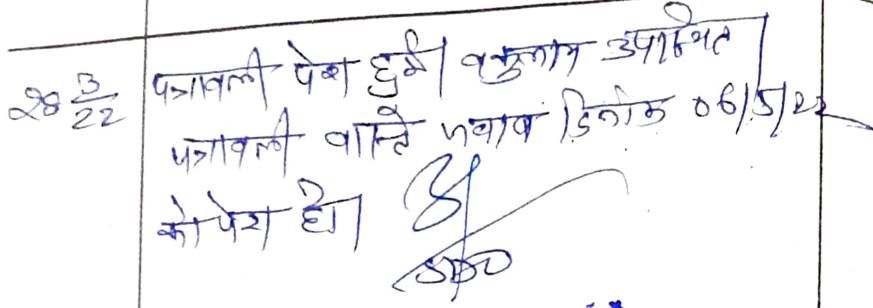 28 3/22 पत्रावली पेश हुई। वकुलाय उपस्थित।
पत्रावली वास्ते जवाब दिनांक 06/5/22
को पेश हो।
SDO